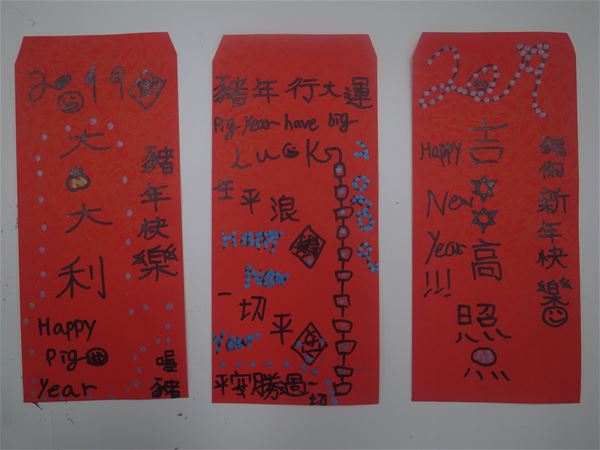 大大利
豬年快樂
Happy
Pig
Year
喔豬
豬年行大運
Pig Year have big
Lucks
平浪
Happy
New
Year
一切平
平安勝過一切
2019
Happy
New
Year
!!!
吉高照
豬你新年快樂